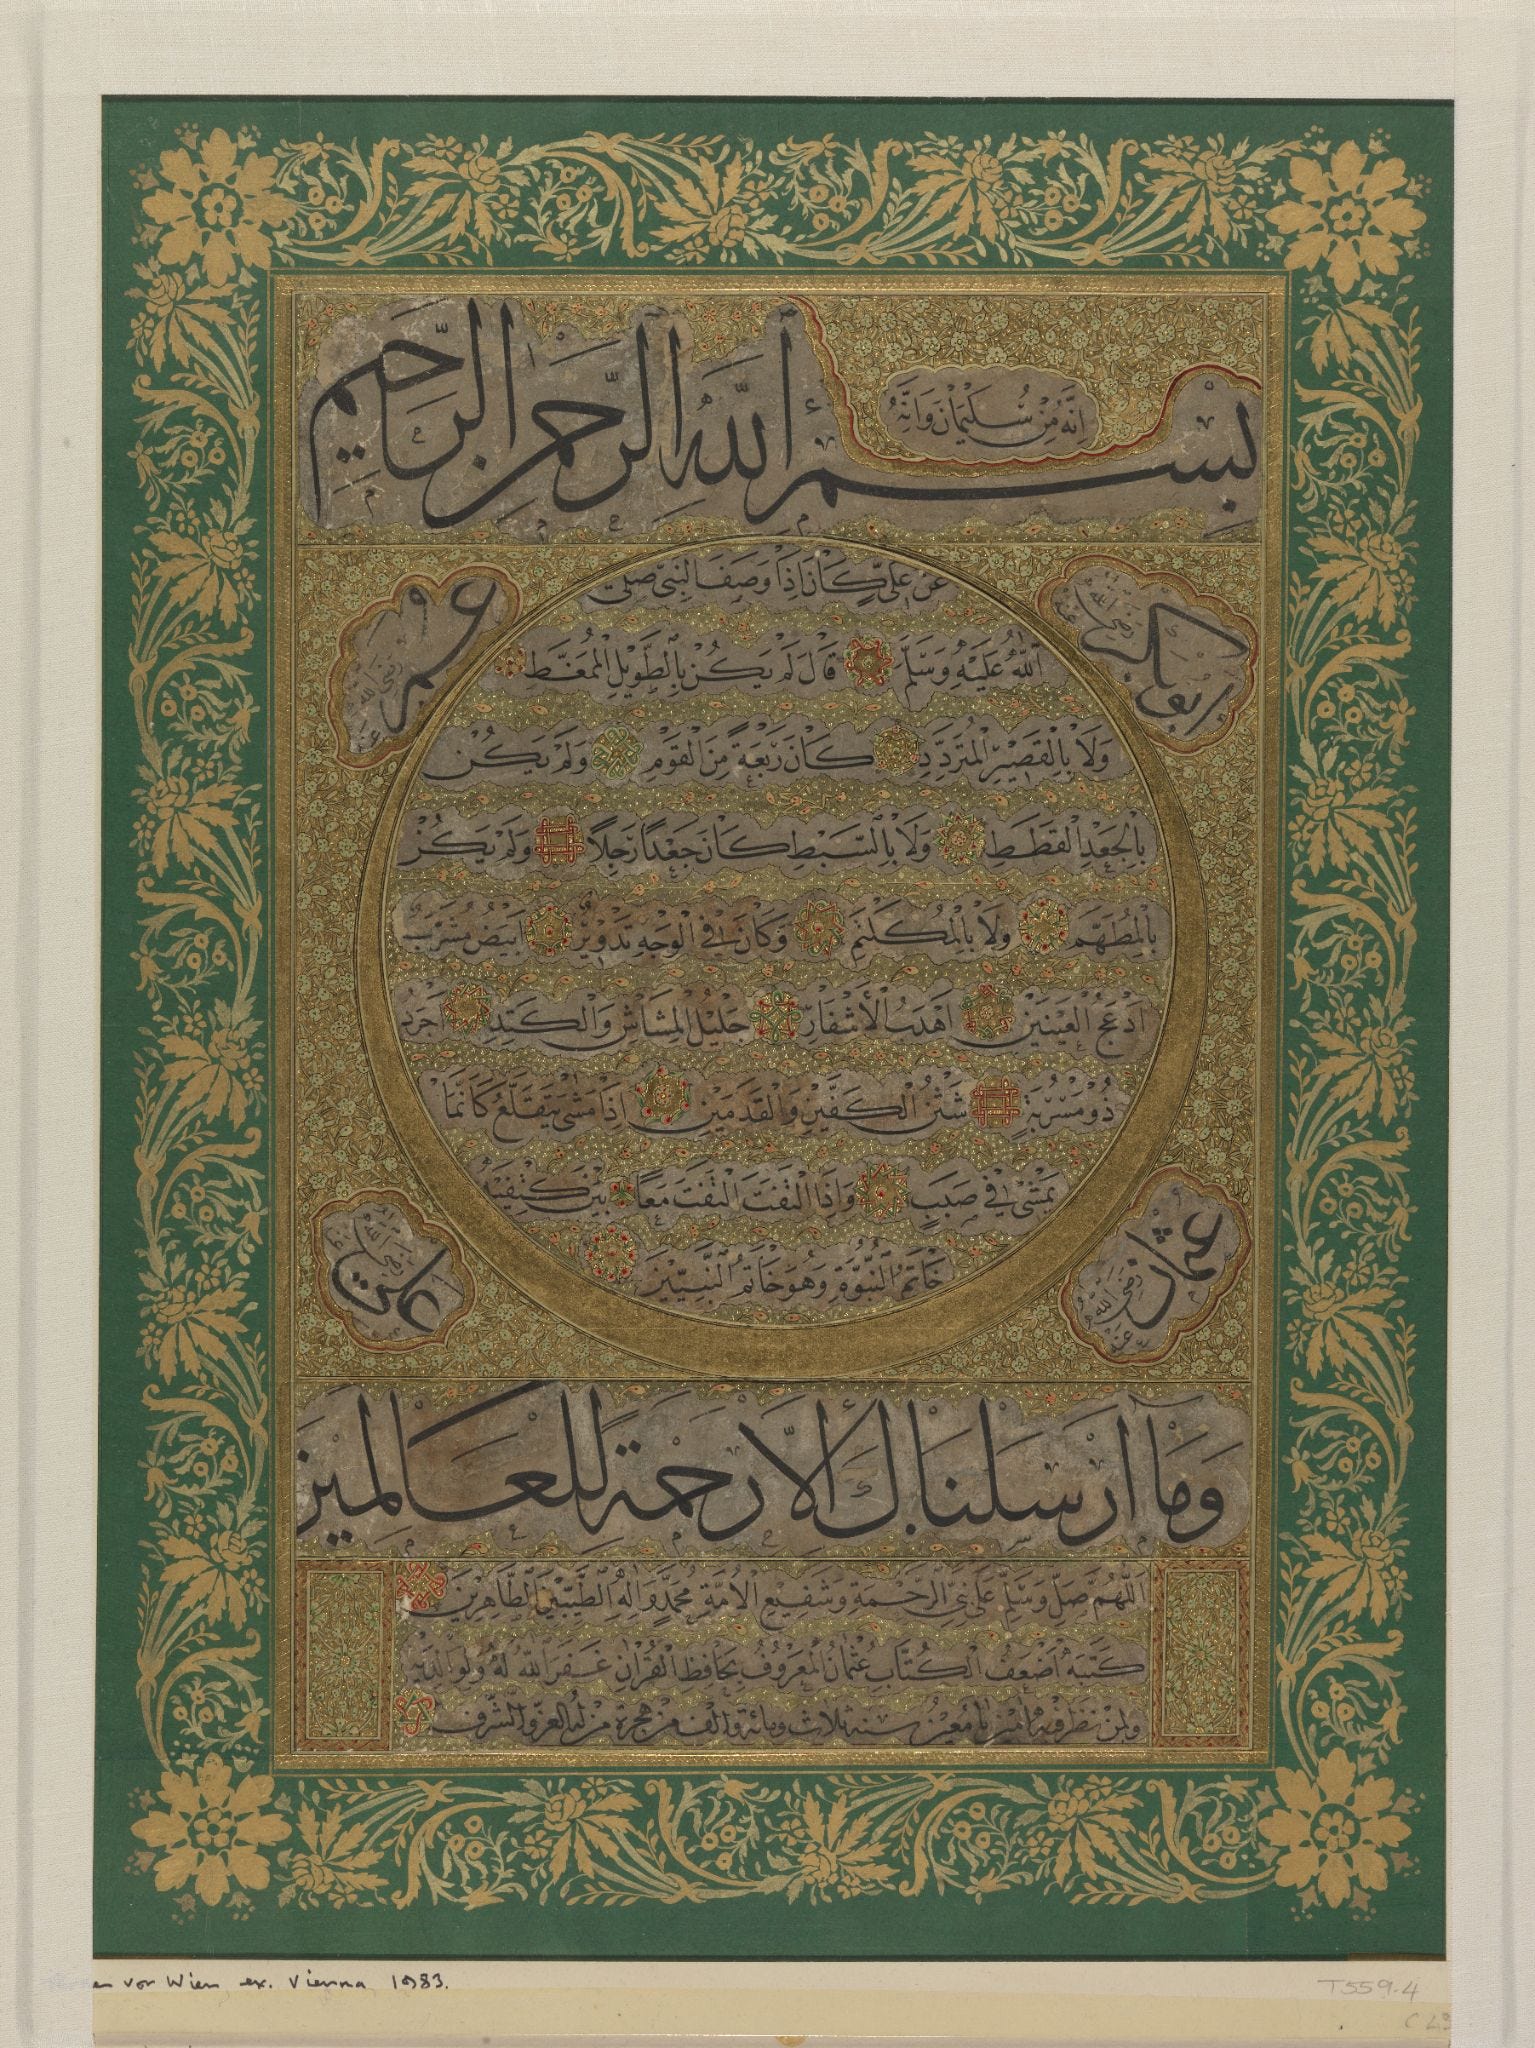 بِسْمِ اللَّهِ الرَّحْمَنِ الرَّحِيمِ
اِنَّهُ مِنْ سُلَيْمَانَ وَاِنَّهُ
عَنْ عَلِيٍّ كَانَ اِذَا وَصَفَ النَّبِيَّ صَلَّى
اللّٰهُ عَلَيْهِ وَسَلَّمَ قَالَ لَمْ يَكُنْ بِالطَّوِيلِ الْمُمَغَّطِ
وَلَا بِالْقَصِيرِ الْمُتَرَدِّدِ كَانَ رَبْعَةً مِنَ الْقَوْمِ وَلَمْ يَكُنْ
بِالْجَعْدِ الْقَطَطِ وَلَا بِالسَّبْطِ كَانَ جَعْدًا رَجِلًا وَلَمْ يَكُنْ
بِالْمُطَهَّمِ وَلَا بِالْمُكَلْثَمِ وَكَانَ فِي الْوَجْهِ تَدْوِيرٌ اَبْيَضُ مُشْرَبٌ
اَدْعَجُ الْعَيْنَيْنِ اَهْدَبُ الْأَشْفَارِ جَلِيلُ الْمُشَاشِ وَالْكَتَدِ اَجْرَدُ
ذُو مَسْرُبَةٍ شَثْنُ الْكَفَّيْنِ وَالْقَدَمَيْنِ اِذَا مَشَى يَتَقَلَّعُ كَاَنَّمَا
يَمْشِي فِي صَبَبٍ وَاِذَا الْتَفَتَ الْتَفَتَ مَعًا بَيْنَ كَتِفَيْهِ
خَاتَمُ النُّبُوَّةِ وَهُوَ خَاتَمُ النَّبِيِّينَ
ابوبكر رضي الله عنه
عمر رضي الله عنه
عثمان رضي الله عنه
علي رضي الله عنه
وَمَا اَرْسَلْنَاكَ اِلَّا رَحْمَةً لِلْعَالَمِينَ
اَللّٰهُمَّ صَلِّ وَسَلِّمْ عَلَى نَبِيِّ الرَّحْمَةِ وَشَفِيعِ الْاُمَّةِ مُحَمَّدٍ وَاٰلِهِ الطَّيِّبِينَ الطَّاهِرِينَ
كَتَبَهُ اَضْعَفُ الْكُتَّابِ عُثْمَانُ الْمَعْرُوفُ بِحَافِظِ الْقُرْاٰنِ غَفَرَ اللّٰهُ لَهُ وَلِوَالِدَيْهِ
وَلِمَنْ نَظَرَ فِيهِ اٰمِينَ يَا مُعِينُ سنة ثلاث ومائة والف من هجرة من له العز والشرف
vor Wien ex. Vienna 1983.
T559.4